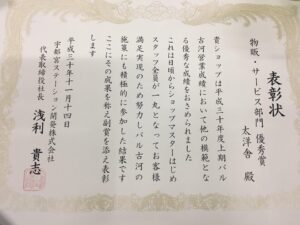 表彰状
物販・サービス部門 優秀賞
太洋舎 殿
貴ショップは平成三十年度上期パル
古河営業成績において他の模範とな
る優秀な成績をおさめられました
これは日頃からショップマスターはじめ
スタッフ全員が一丸となってお客様
満足実現のため努力しパル古河の
施策にも積極的に参加した結果です
ここにその成果を称え副賞を添え表彰
します
平成三十年十一月十四日
宇都宮ステーション開発株式会社
代表取締役社長 浅利 貴志